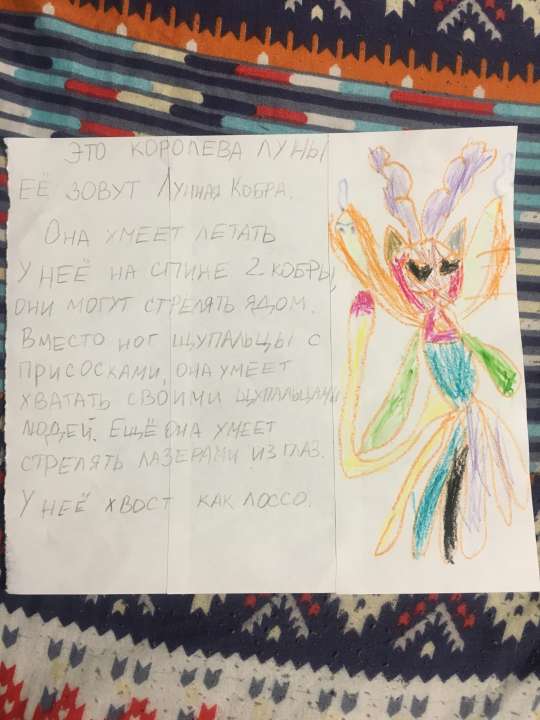 ЭТО КОРОЛЕВА ЛУНЫ
ЕЁ ЗОВУТ ЛУННАЯ КОБРА.
ОНА УМЕЕТ ЛЕТАТЬ
У НЕЁ НА СПИНЕ 2 КОБРЫ,
ОНИ МОГУТ СТРЕЛЯТЬ ЯДОМ.
ВМЕСТО НОГ ЩУПАЛЬЦЫ С
ПРИСОСКАМИ, ОНА УМЕЕТ
ХВАТАТЬ СВОИМИ ЩУПАЛЬЦАМИ
ЛЮДЕЙ. ЕЩЁ ОНА УМЕЕТ
СТРЕЛЯТЬ ЛАЗЕРАМИ ИЗ ГЛАЗ.
У НЕЁ ХВОСТ КАК ЛОССО.